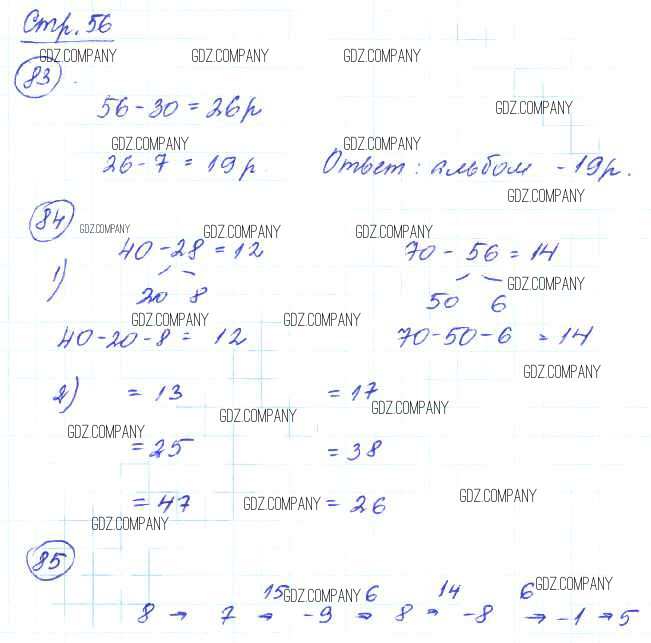 Стр. 56
GDZ.COMPANY GDZ.COMPANY GDZ.COMPANY
83
56 - 30 = 26р GDZ.COMPANY
GDZ.COMPANY GDZ.COMPANY
26 - 7 = 19р. Ответ: альбом - 19р.
GDZ.COMPANY
84 GDZ.COMPANY GDZ.COMPANY GDZ.COMPANY
1) 40 - 28 = 12 70 - 56 = 14
GDZ.COMPANY
20 8 50 6
GDZ.COMPANY GDZ.COMPANY
40 - 20 - 8 = 12 70 - 50 - 6 = 14
GDZ.COMPANY
2) = 13 = 17
GDZ.COMPANY GDZ.COMPANY
GDZ.COMPANY
= 25 = 38
= 47 GDZ.COMPANY = 26 GDZ.COMPANY
GDZ.COMPANY
85
15 GDZ.COMPANY 6 14 6 GDZ.COMPANY
8 → 7 → -9 → 8 → -8 → -1 → 5